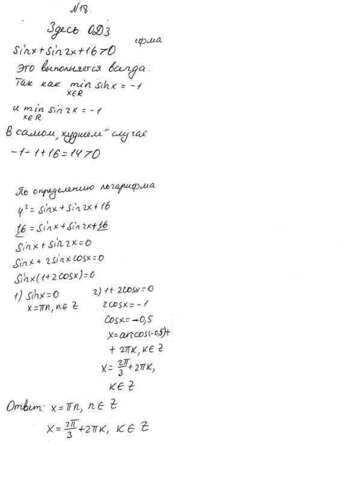 N18
Здесь ОДЗ
ифма
sinx+sin2x+16>0
это выполняется всегда.
Так как min sinx = -1
x∈R
и min sin2x = -1
x∈R
В самом „худшем" случае
-1-1+16=14>0
По определению логарифма
4²=sinx+sin2x+16
16=sinx+sin2x+16
sinx+sin2x=0
sinx+2sinxcosx=0
sinx(1+2cosx)=0
1) sinx=0 2) 1+2cosx=0
x=πn, n∈Z 2cosx=-1
cosx=-0,5
x=arccos(-0,5)+
+2πk, k∈Z
x=2π/3+2πk,
k∈Z
Ответ: x=πn, n∈Z
x=2π/3+2πk, k∈Z